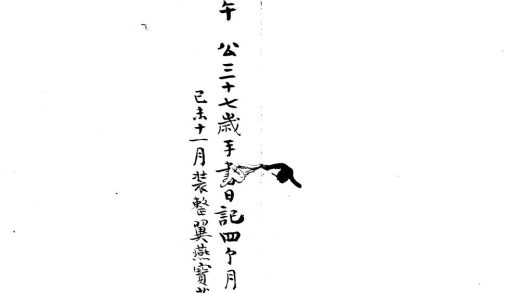 午 公三十七歲手書日記四个月
己未十一月裝整翼燕寶